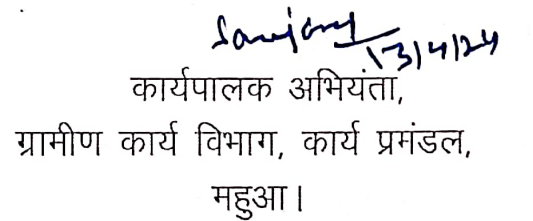 Sanjay
13/4/24
कार्यपालक अभियंता,
ग्रामीण कार्य विभाग, कार्य प्रमंडल,
महुआ।